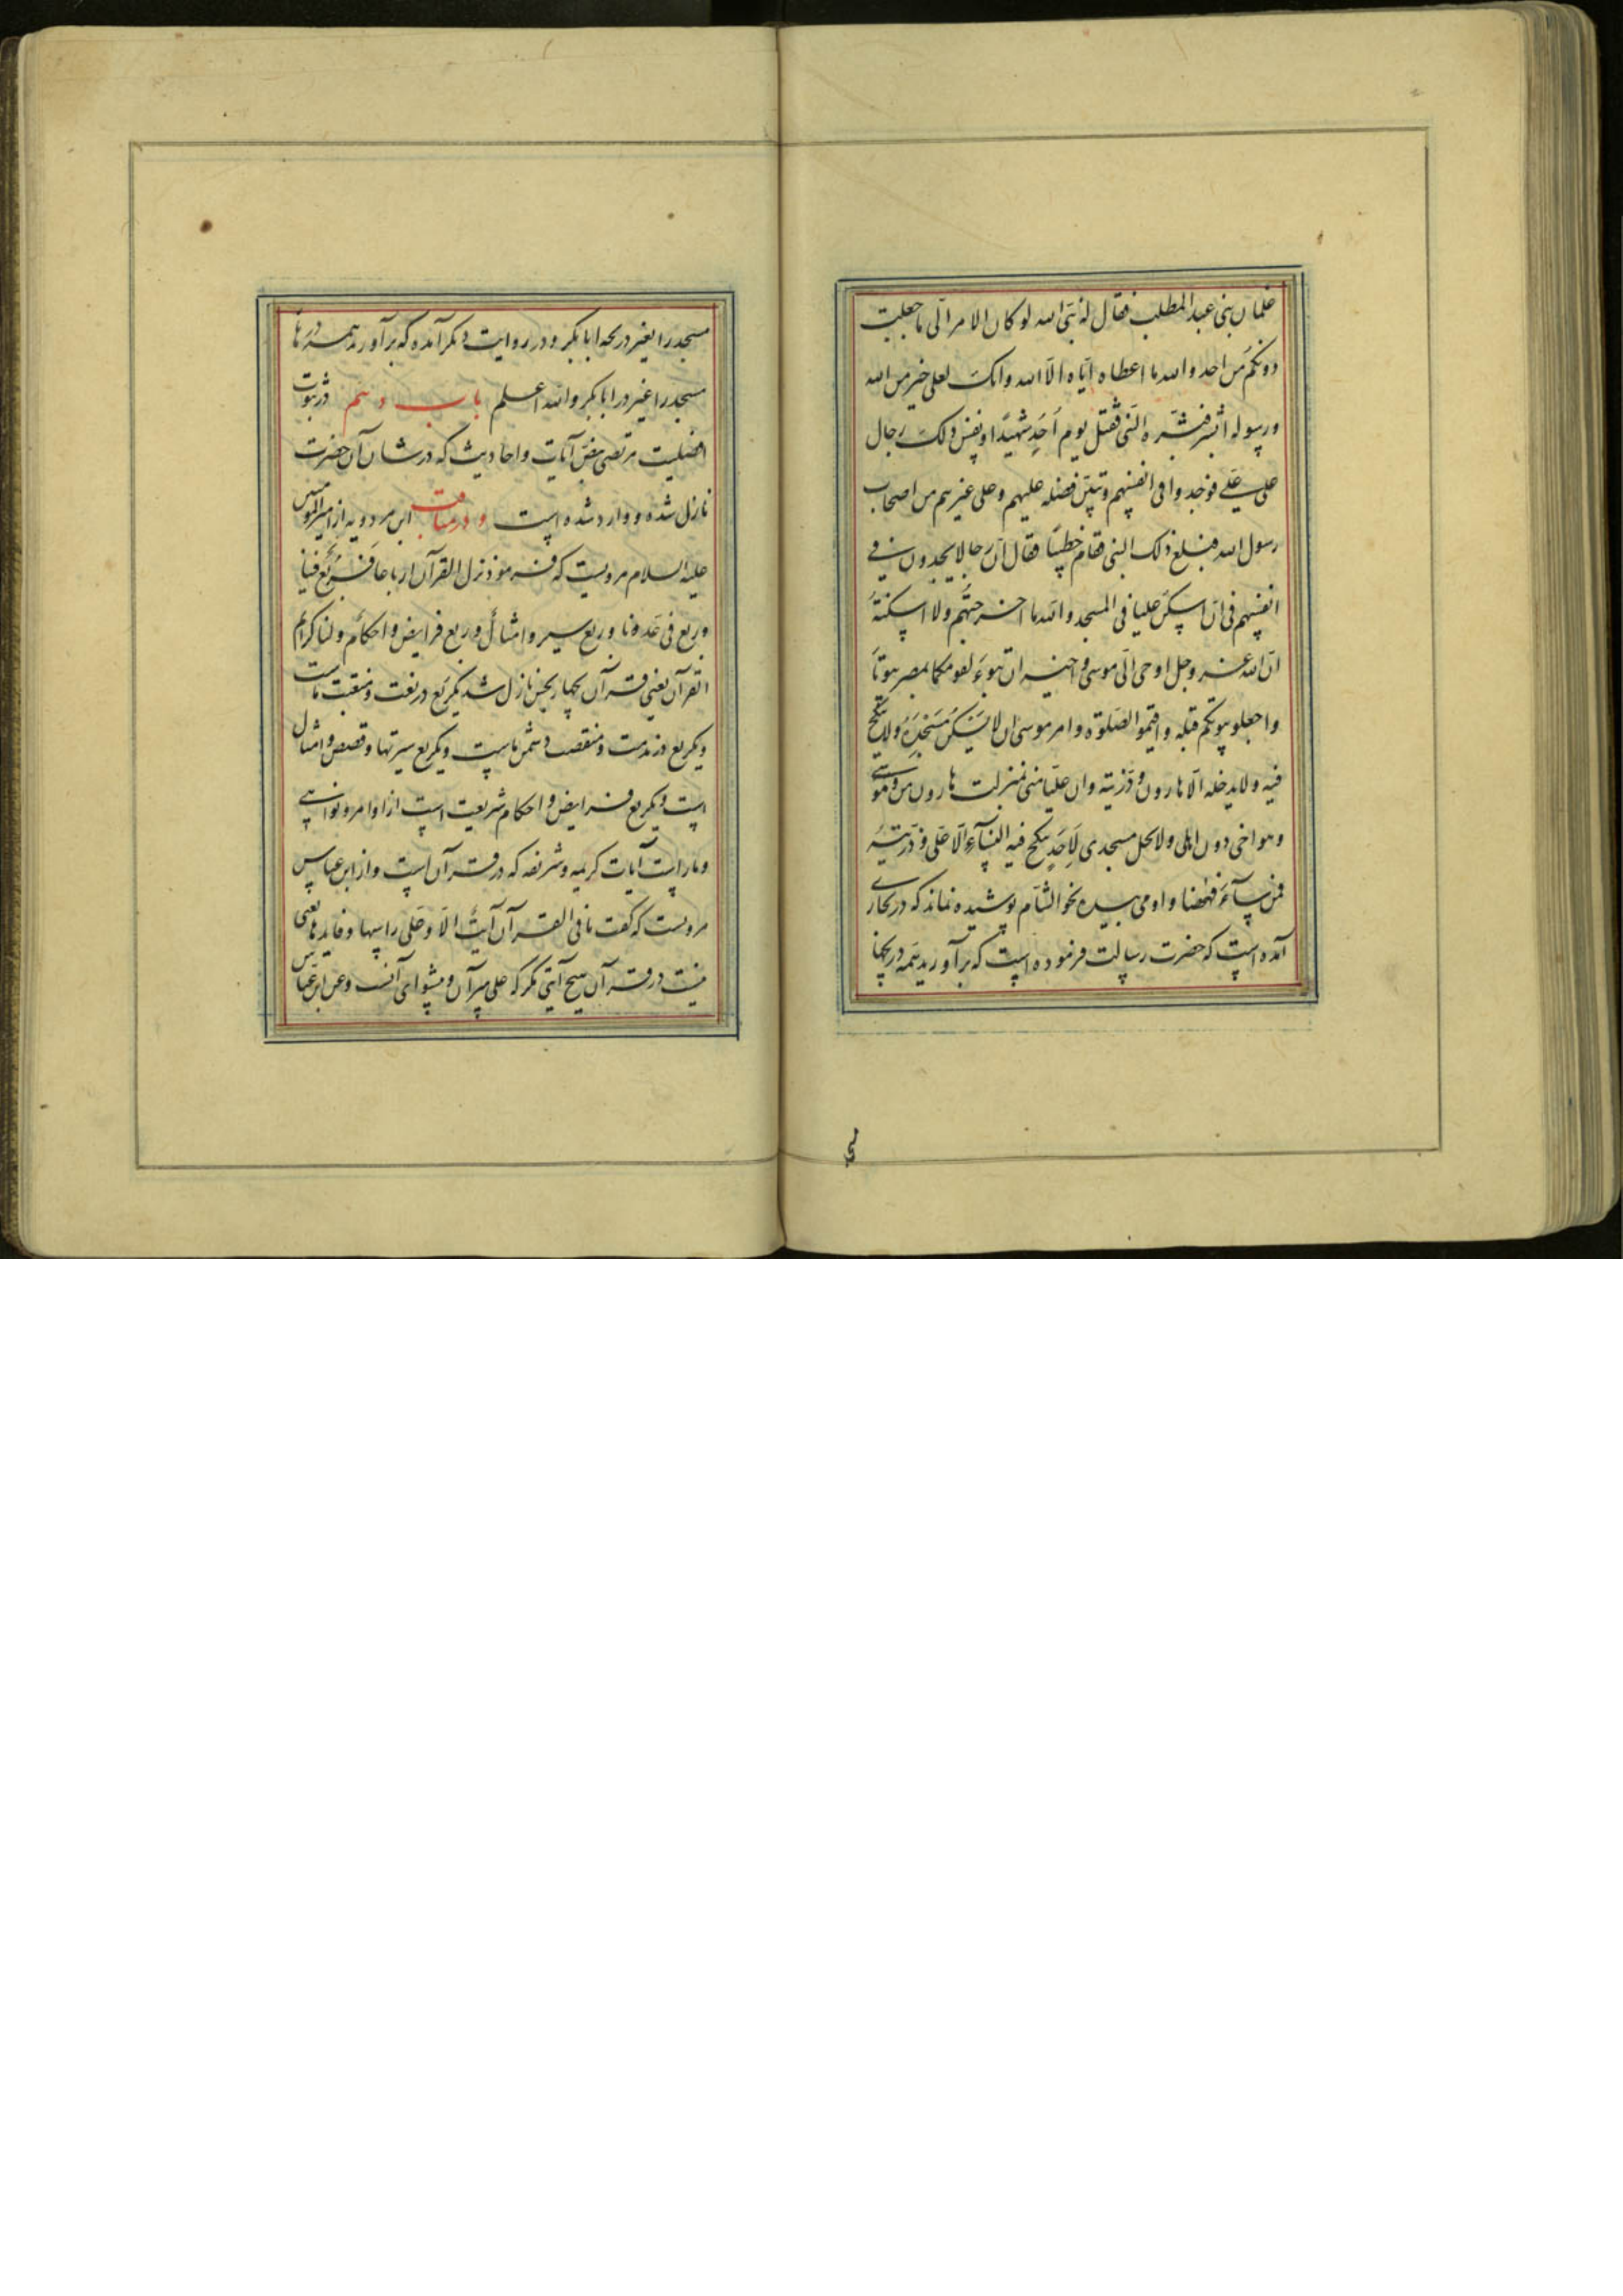 غلمان بنی عبدالمطلب فقال له نبی الله لو کان الامر الی ما جعلت
دونکم من احد والله ما اعطاه ایاه الا الله وانک لعلی خیر من الله
ورسوله ابشر فبشره النبی فقتل یوم احد شهیدا ونفس ذلک رجال
علی علی فوجدوا فی انفسهم وتبین فضله علیهم وعلی غیرهم من اصحاب
رسول الله فبلغ ذلک النبی فقام خطیبا فقال ان رجالا یجدون فی
انفسهم فی ان اسکن علیا فی المسجد والله ما اخرجتهم ولا اسکنته
ان الله عز وجل اوحی الی موسی واخیه ان تبوء لقومکما بمصر بیوتا
واجعلو بیوتکم قبله واقیموا الصلوة وامر موسی ان لا یسکن مسجده ولا ینکح
فیه ولا یدخله الا هارون وذریته وان علیا منی بمنزلت هارون من موسی
وهو اخی دون اهلی ولا یحل مسجدی لاحد ینکح فیه النسآء الا علی وذریته
فمن سآء فههنا واومی بیده نحو الشام پوشیده نماند که در بخاری
آمده است که حضرت رسالت فرموده است که برآورید همه دریچها
مسجد را بغیر دریچه ابابکر و در روایت دیکر آمده که برآورید همه درها
مسجد را غیر در ابابکر والله اعلم باب دهم در ثبوت
افضلیت مرتضی بنص آیات واحادیث که در شان آن حضرت
نازل شده و وارد شده است و در مناقب ابن مردویه از امیرالمومنین
علیه السلام مرویست که فرمود نزل القرآن ارباعا فربع فینا
وربع فی عدونا وربع سیر وامثال وربع فرایض واحکام ولنا کرائم
القرآن یعنی قرآن بچهار بخش نازل شد یکربع در نعت ومنقبت ماست
ویکربع در مذمت ومنقصت دشمن ماست ویکربع سیرتها وقصص وامثال
است ویکربع فرایض واحکام شریعت است از اوامر ونواهی
وماراست آیات کریمه وشریفه که در قرآن است واز ابن عباس
مرویست که گفت ما فی القرآن آیة الا وعلی راسها وقایدها یعنی
نیست در قرآن هیچ آیتی مکر که علی میر آن وپیشوای آنست وعن ابن عباس